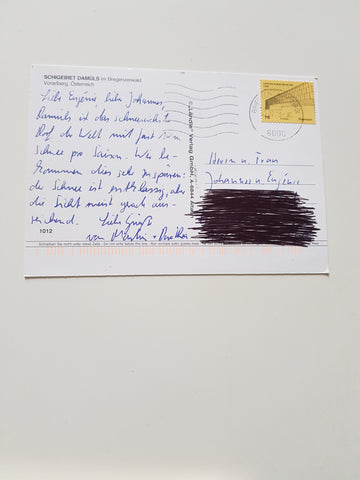 SCHIGEBIET DAMÜLS im Bregenzerwald
Vorarlberg, Österreich
Liebe Eugénie lieber Johannes,
Damüls ist das schneereichste
Dorf der Welt mit fast 10 m
Schnee pro Saison. Wir be-
kommen dies sehr zu spüren:
der Schnee ist erstklassig, aber
die Sicht meist grad aus-
reichend. Liebe Grüße
von Martin +
1012
Schreiben Sie nicht unter diese Zeile
Verlag GmbH, A-6844
6000
Herrn u. Frau
Johannes u. Eugénie